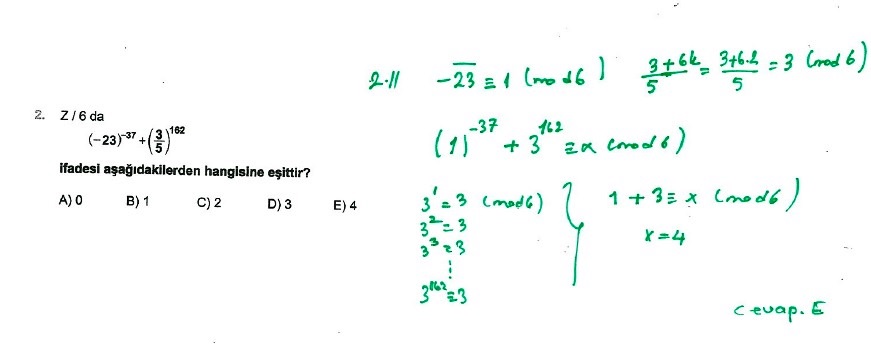 2. Z / 6 da
(−23)^−37 + (3/5)^162
ifadesi aşağıdakilerden hangisine eşittir?
A) 0 B) 1 C) 2 D) 3 E) 4
2.// −23 ≡ 1 (mod 6) 3+6k/5 = 3+6.2/5 = 3 (mod 6)
(1)^−37 + 3^162 ≡ x (mod 6)
3^1 = 3 (mod 6)
3^2 = 3
3^3 = 3
3^162 = 3
1 + 3 ≡ x (mod 6)
x = 4
Cevap. E